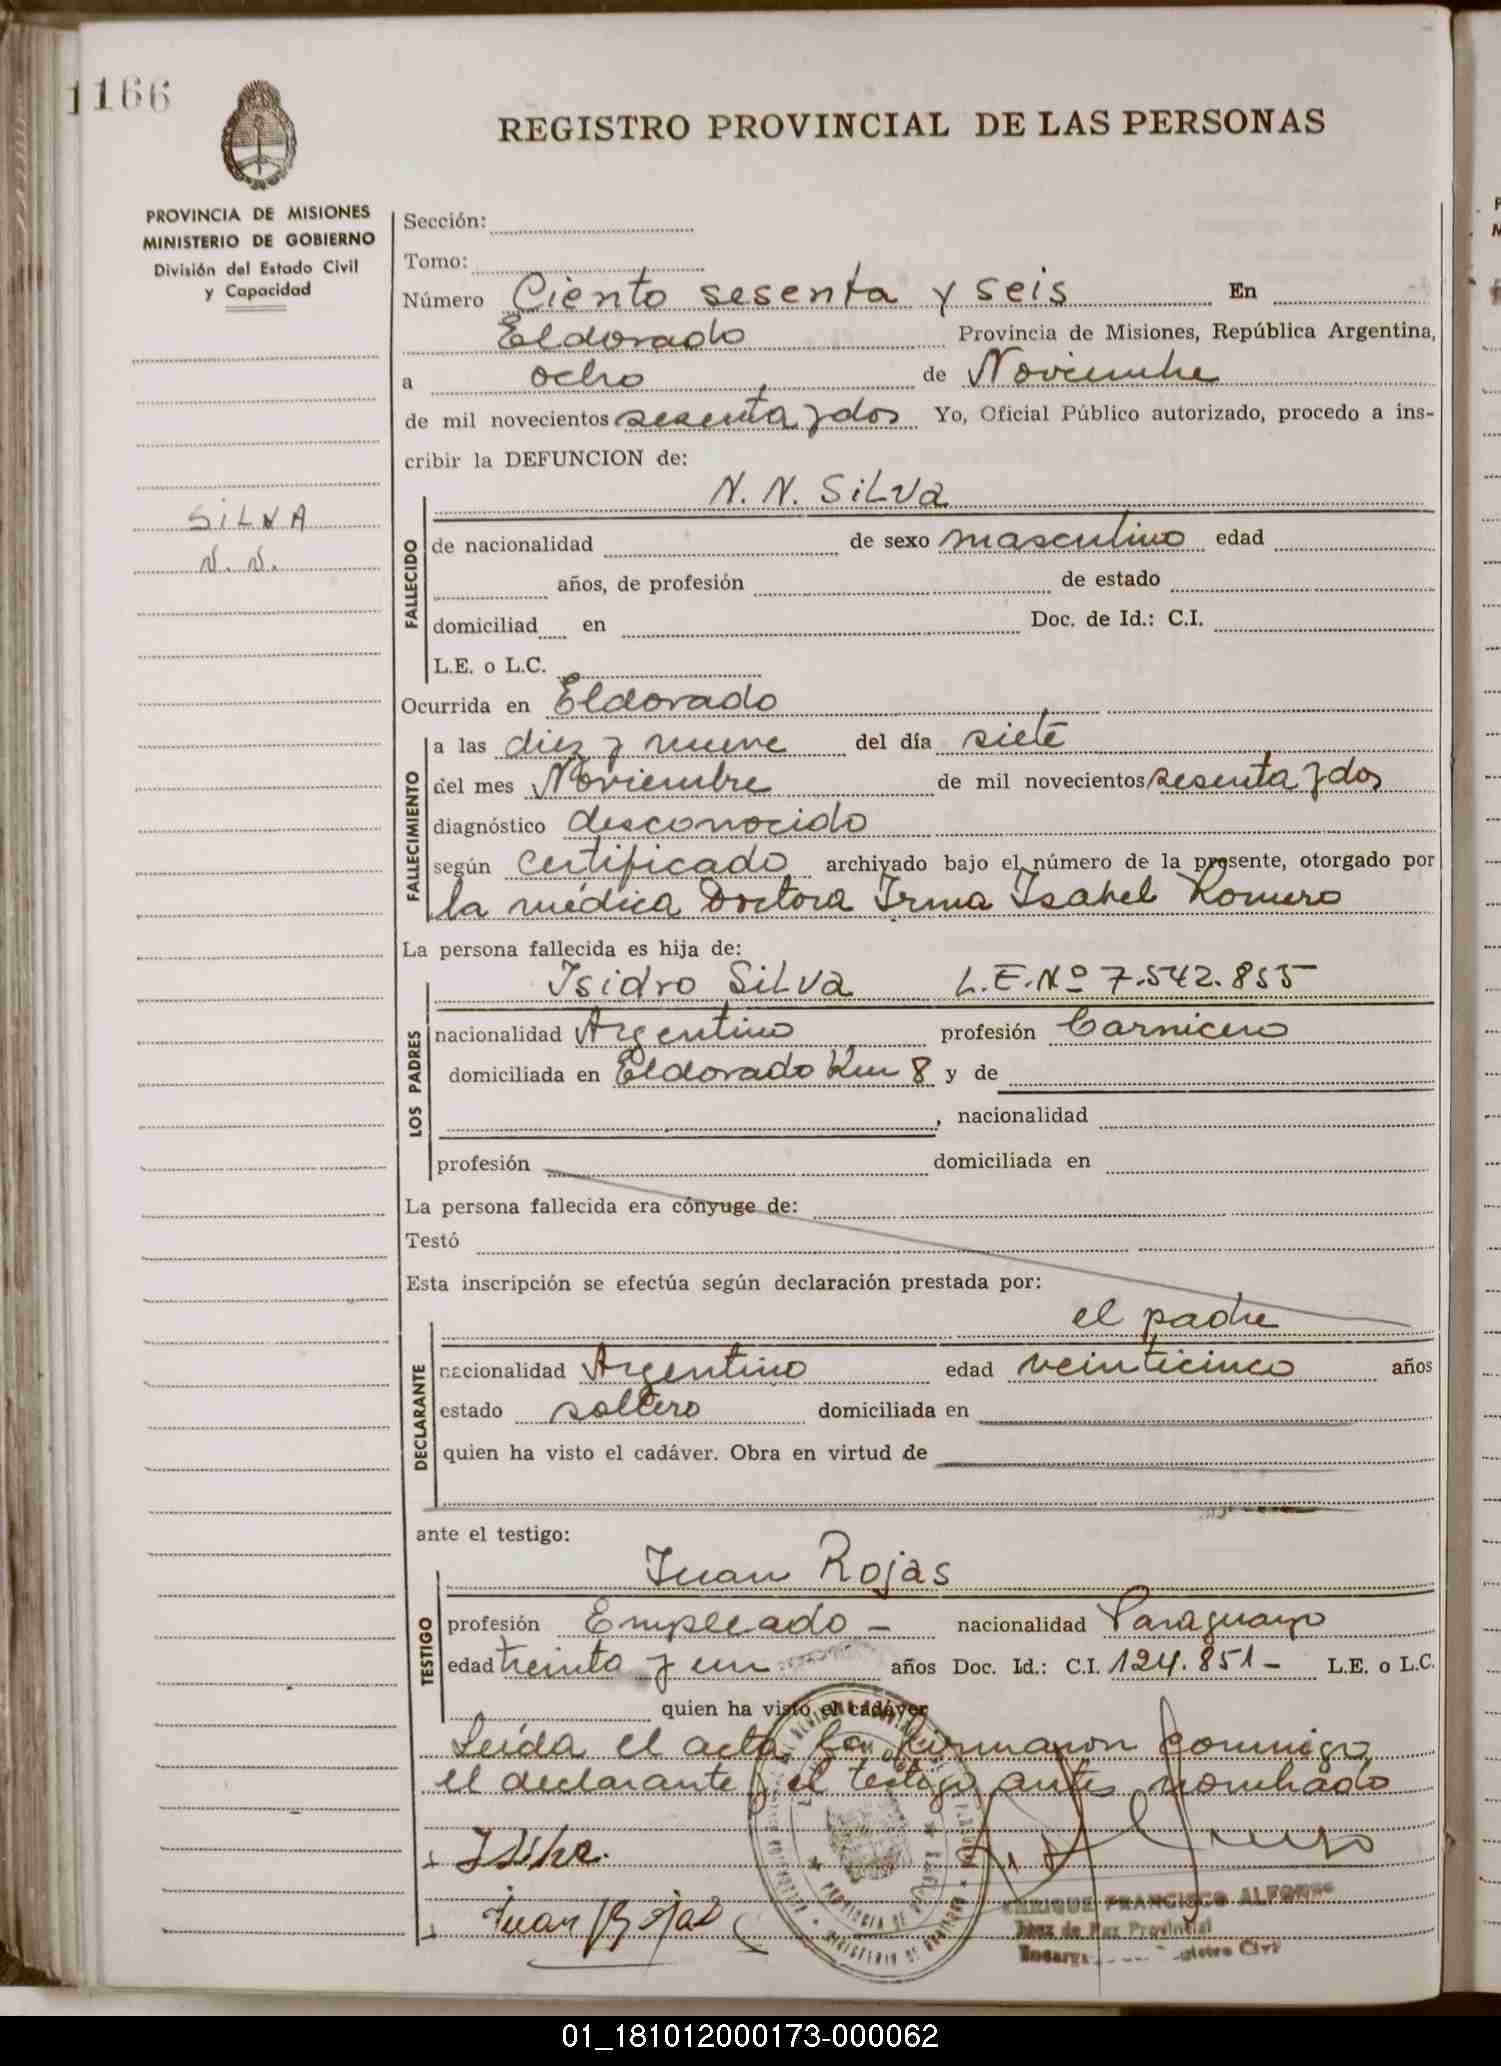 1166
REGISTRO PROVINCIAL DE LAS PERSONAS
PROVINCIA DE MISIONES
MINISTERIO DE GOBIERNO
División del Estado Civil
y Capacidad
SILVA
N. N.
Sección:
Tomo:
Número Ciento sesenta y seis En
Eldorado Provincia de Misiones, República Argentina,
a ocho de Noviembre
de mil novecientos sesenta y dos Yo, Oficial Público autorizado, procedo a ins-
cribir la DEFUNCION de:
N. N. SiLVa
FALLECIDO
de nacionalidad de sexo masculino edad
años, de profesión de estado
domiciliad en Doc. de Id.: C.I.
L.E. o L.C.
Ocurrida en Eldorado
FALLECIMIENTO
a las diez y nueve del día siete
del mes Noviembre de mil novecientos sesenta y dos
diagnóstico desconocido
según certificado archivado bajo el número de la presente, otorgado por
la médica Doctora Irma Isabel Romero
La persona fallecida es hija de:
LOS PADRES
Isidro SiLVa L.E.Nº 7.542.855
nacionalidad Argentino profesión Carnicero
domiciliada en Eldorado Km 8 y de
, nacionalidad
profesión domiciliada en
La persona fallecida era cónyuge de:
Testó
Esta inscripción se efectúa según declaración prestada por:
DECLARANTE
el padre
nacionalidad Argentino edad veinticinco años
estado soltero domiciliada en
quien ha visto el cadáver. Obra en virtud de
ante el testigo:
TESTIGO
Juan Rojas
profesión Empleado – nacionalidad Paraguayo
edad treinta y un años Doc. Id.: C.I. 124.851 – L.E. o L.C.
quien ha visto el cadáver
Leída el acta la firmaron conmigo
el declarante y el testigo antes nombrado
ISilva.
Juan Rojas
PROVINCIA DE
MINISTERIO DE GOBIERNO
ENRIQUE FRANCISCO ALFONSO
Juez de Paz Provincial
01_181012000173-000062